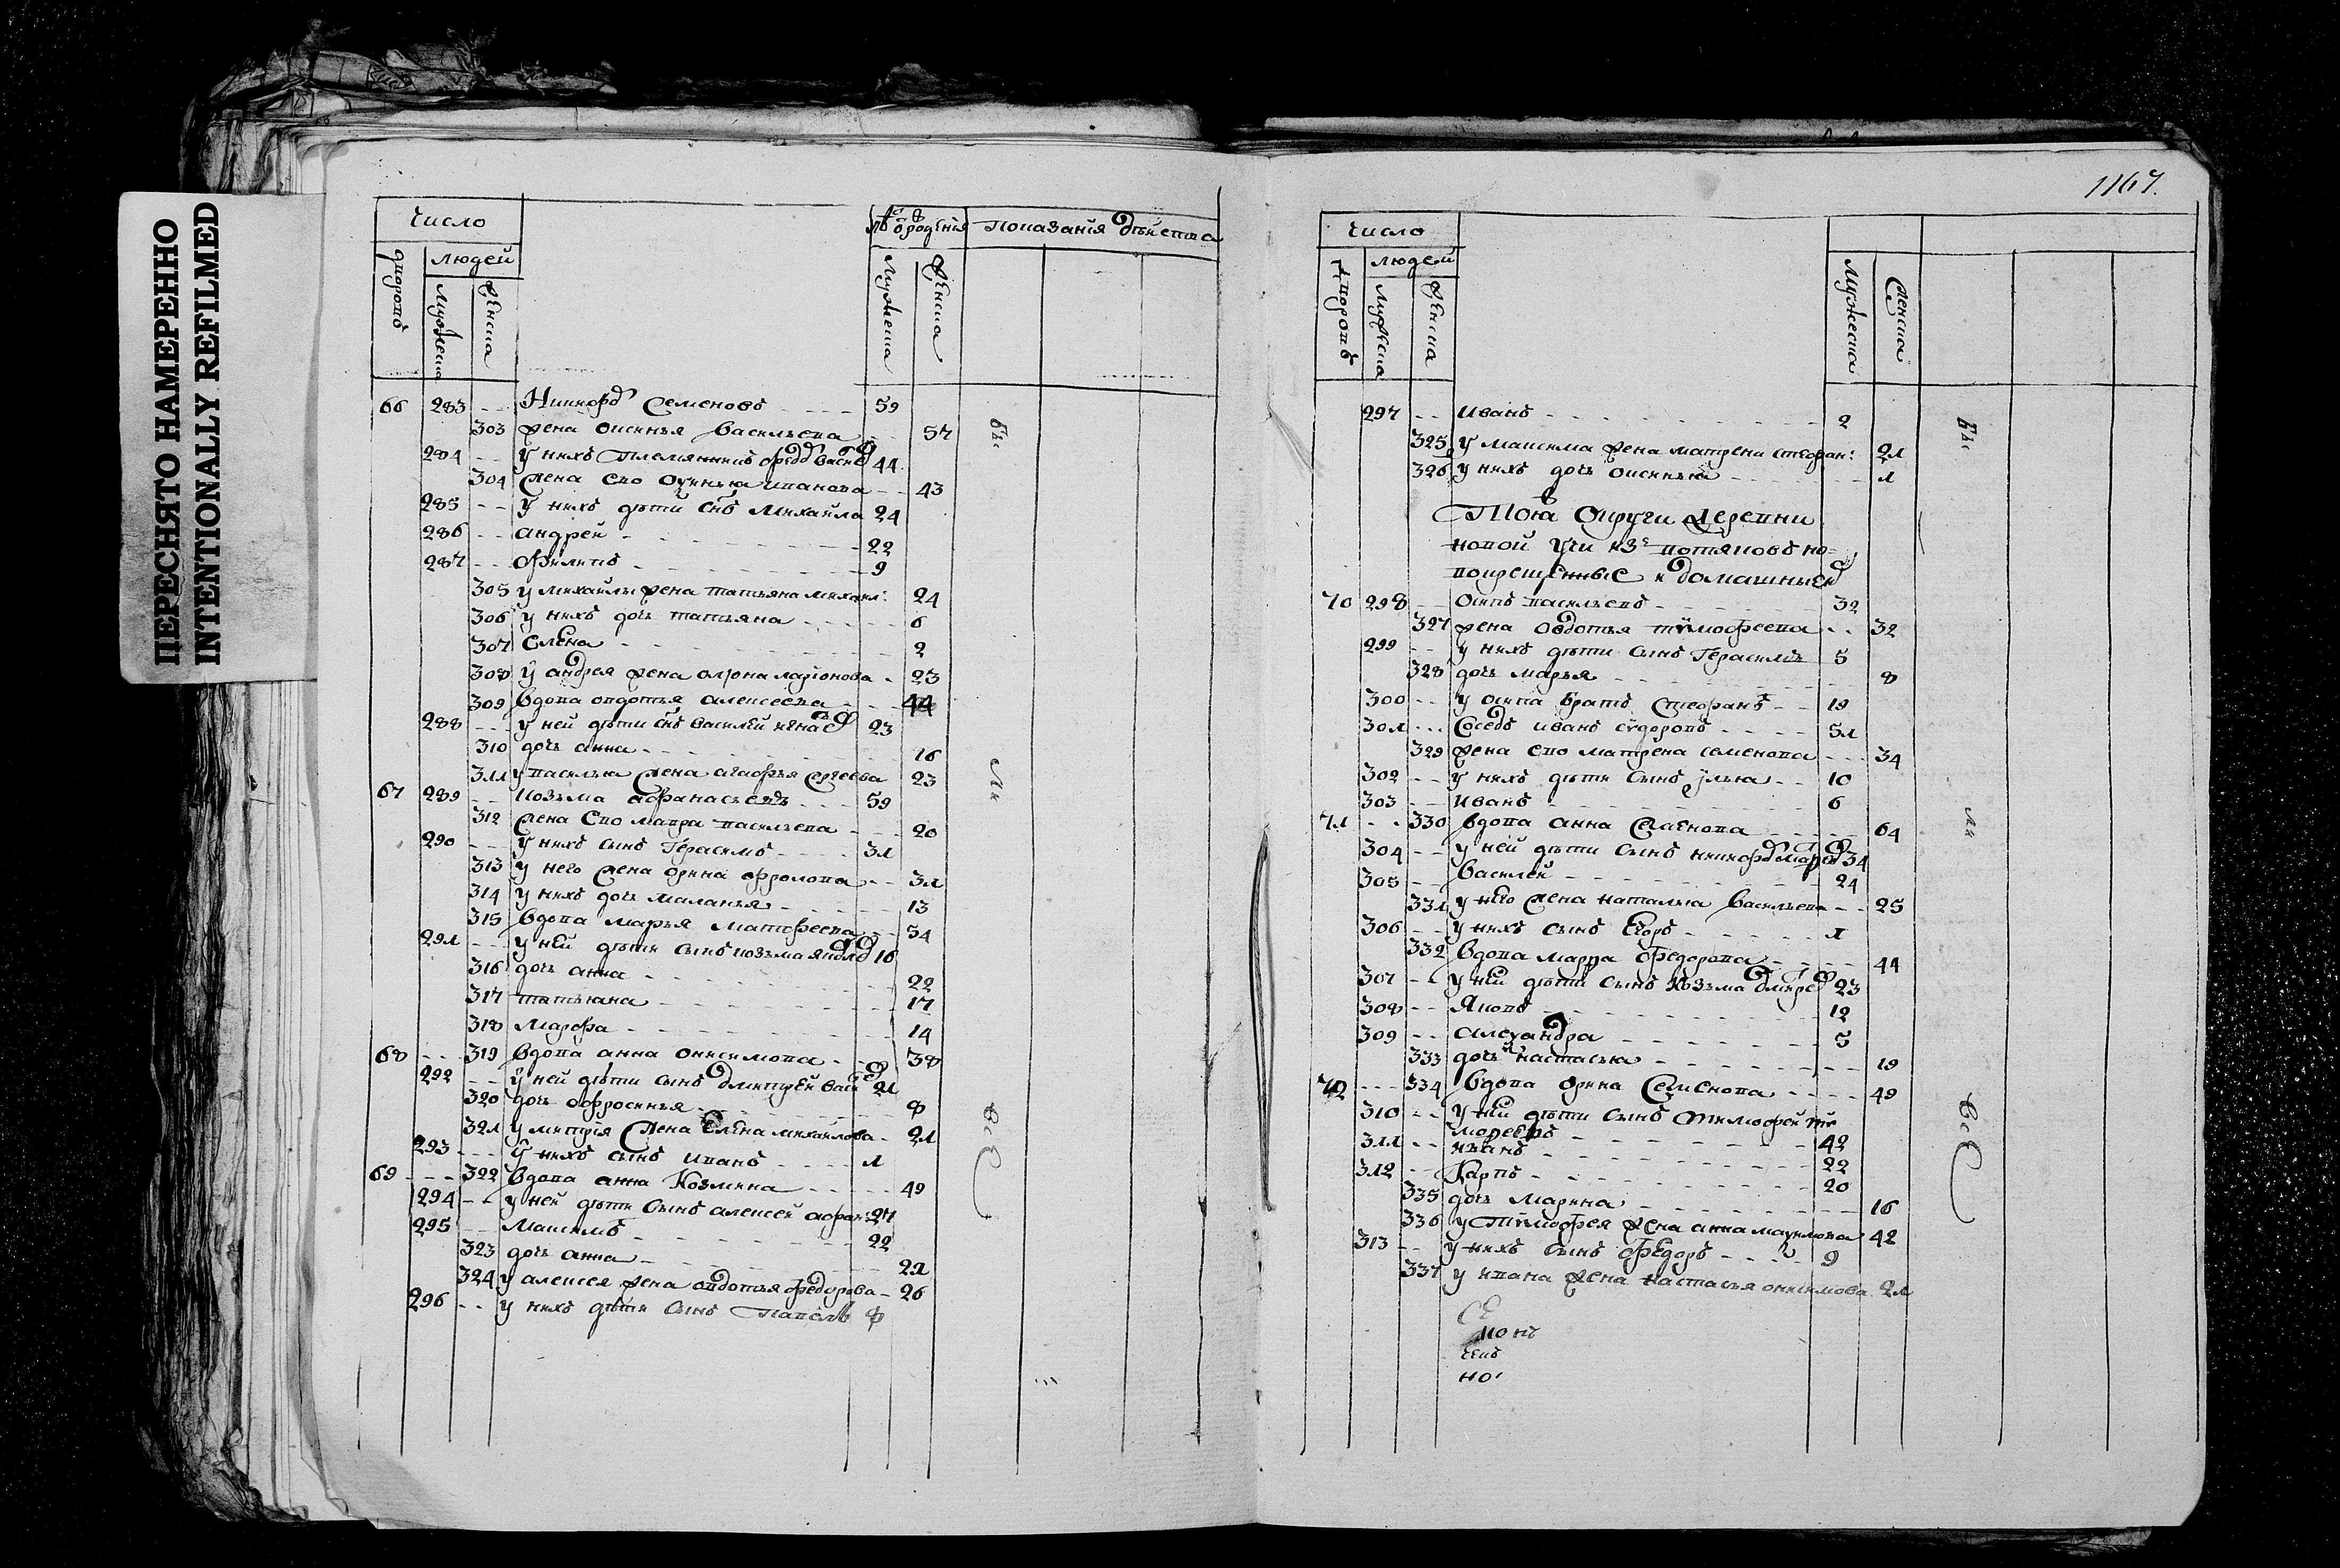 ПЕРЕСНЯТО НАМЕРЕННО
INTENTIONALLY REFILMED
число
людей
дворовъ
мужеска
женска
Показанія действа
мужеска
женска
66 283 Никифоръ Семеновъ 59
303 жена оксинья Васильева 57
284 у нихъ племянникъ Федоръ 44
304 жена ево оксинья иванова 43
285 у нихъ дѣти снъ Михаила 24
286 андрей 22
287 Филипъ 9
305 у михайлы жена татьяна михаил: 24
306 у нихъ дочь татьяна 6
307 елена 2
308 у андрея жена алена ларіонова 23
309 вдова овдотья алексеева 44
288 у ней дѣти снъ василей 23
310 дочь анна 16
311 у василья жена агафья сергеева 23
67 289 козьма афанасьевъ 59
312 жена ево мавра васильева 20
290 у нихъ сынъ Герасимъ 31
313 у него жена орина фролова 31
314 у нихъ дочь маланья 13
315 вдова марья матфеева 54
291 у ней дѣти сынъ козьма 16
316 дочь анна 22
317 татьяна 17
318 марфа 14
68 319 вдова анна онисимова 38
292 у ней дѣти сынъ дмитрей вас 21
320 дочь офросинья 8
321 у митрія жена елена михайлова 21
293 у нихъ сынъ иванъ 1
69 322 вдова анна Козмина 49
294 у ней дѣти сынъ алексей афан: 27
295 Максимъ 22
323 дочь анна 21
324 у алексея жена овдотья федорова 26
296 у нихъ дѣти сынъ Павелъ 8
1167.
число
людей
дворовъ
мужеска
женска
мужеска
женска
297 иванъ 2
325 у максима жена матрена стефан: 21
326 у нихъ дочь оксинья 1
Тоя округи деревни
новой учи изъ вотяковъ но=
вокрещенные
70 298 осипъ васильевъ 32
327 жена овдотья тимофеева 32
299 у нихъ дѣти сынъ Герасимъ 5
328 дочь марья 8
300 у осипа братъ стефанъ 19
301 соседъ иванъ сидоровъ 51
329 жена ево матрена семенова 34
302 у нихъ дѣти сынъ илья 10
303 иванъ 6
71 330 вдова анна семенова 64
304 у ней дѣти сынъ никифоръ 34
305 василей 24
331 у него жена наталья васильева 25
306 у нихъ сынъ егоръ 1
332 вдова марфа федорова 44
307 у ней дѣти сынъ козьма 23
308 Яковъ 12
309 александра 5
333 дочь настасья 19
72 334 вдова орина семенова 49
310 у ней дѣти сынъ тимофей ти
мофеевъ 42
311 иванъ 22
312 Карпъ 20
335 дочь марина 16
336 у тимофея жена анна максимова 42
313 у нихъ сынъ федоръ 9
337 у ивана жена настасья онисимова 21